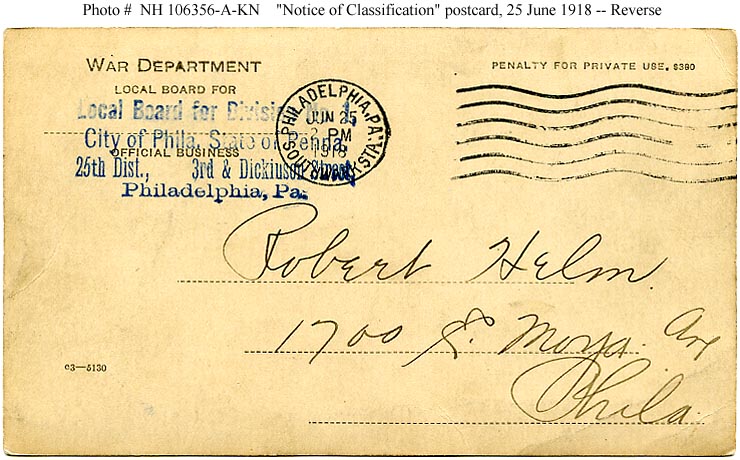 Photo # NH 106356-A-KN "Notice of Classification" postcard, 25 June 1918 -- Reverse
WAR DEPARTMENT
PENALTY FOR PRIVATE USE, $300
LOCAL BOARD FOR
Local Board for Division No. 1,
City of Phila, State of Penna,
OFFICIAL BUSINESS
25th Dist., 3rd & Dickinson Street,
Philadelphia, Pa.
PHILADELPHIA, PA.
JUN 25
2 PM
1918
STA.
Robert Helm
1700 E. Moya. Ave
Phila
c3—5130